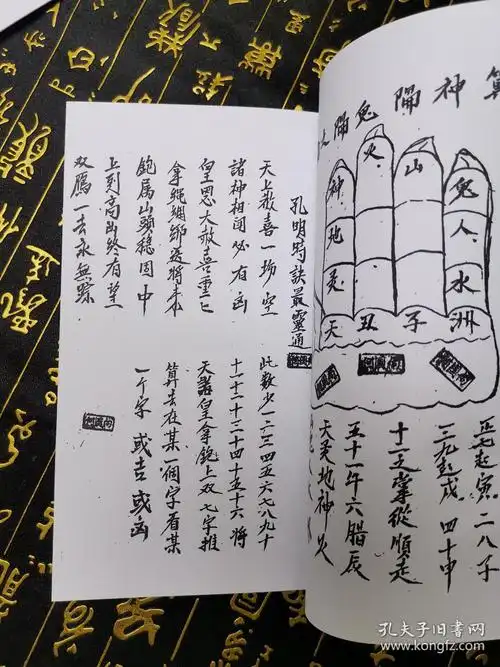 算神鬧鬼鬧人
鬼人水洲
山子
火丑
神地灵天
正七起寅二八子
三九起戌四十申
十一之掌從順走
五十一午六腊辰
天灵地神火
孔明時訣最靈通
天上歡喜一場空
諸神相鬧必有凶
皇恩大赦喜重々
拿繩綑綁送將本
鉋属山頭穩固中
上到高山終有望
双鴈一去永無踪
此數少一二三四五六七八九十
十一十二十三十四十五十六將
天諸皇拿鉋上双七字推
算去在某一個字看某
一个字 或吉或凶
孔夫子旧书网
kongfz.com